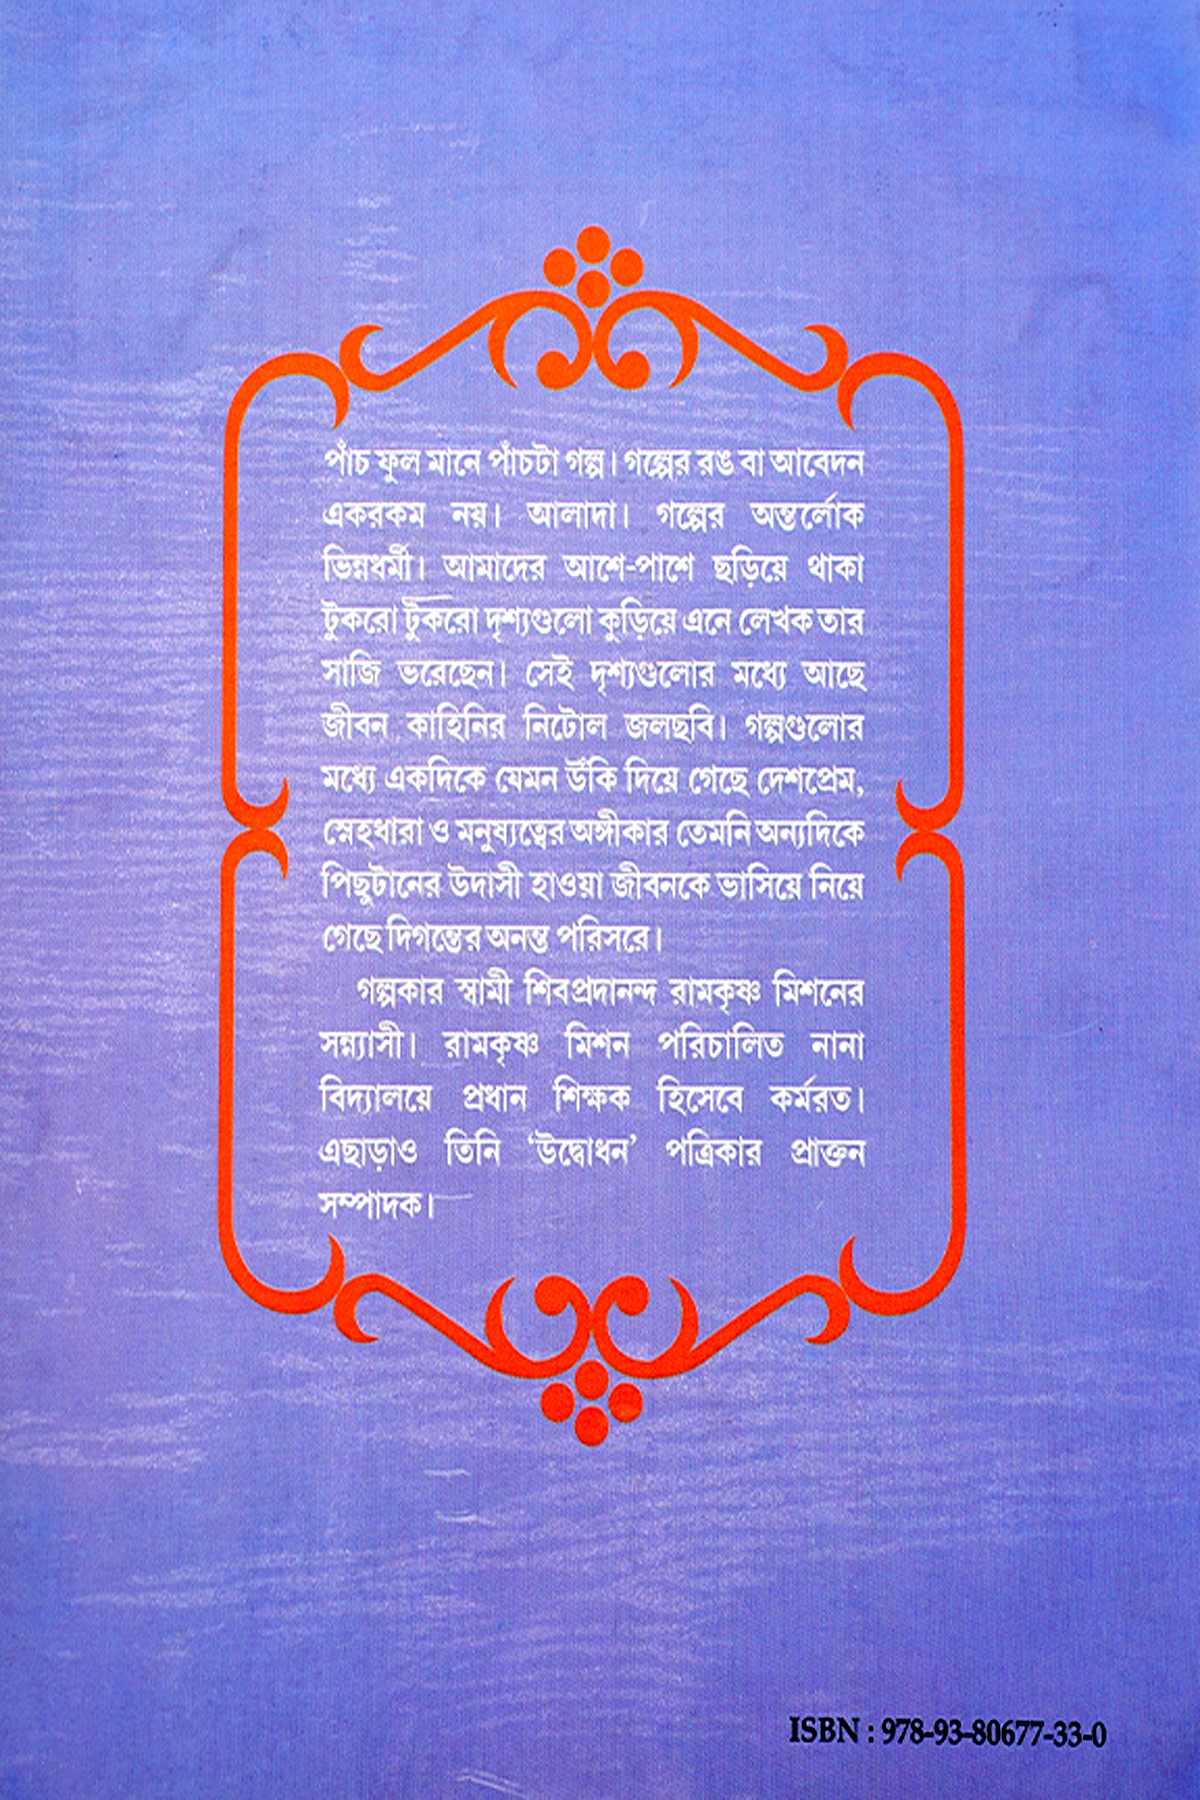 পাঁচ ফুল মানে পাঁচটা গল্প। গল্পের রঙ বা আবেদন
একরকম নয়। আলাদা। গল্পের অন্তর্লোক
ভিন্নধর্মী। আমাদের আশে-পাশে ছড়িয়ে থাকা
টুকরো টুকরো দৃশ্যগুলো কুড়িয়ে এনে লেখক তার
সাজি ভরেছেন। সেই দৃশ্যগুলোর মধ্যে আছে
জীবন কাহিনির নিটোল জলছবি। গল্পগুলোর
মধ্যে একদিকে যেমন উঁকি দিয়ে গেছে দেশপ্রেম,
স্নেহধারা ও মনুষ্যত্বের অঙ্গীকার তেমনি অন্যদিকে
পিছুটানের উদাসী হাওয়া জীবনকে ভাসিয়ে নিয়ে
গেছে দিগন্তের অনন্ত পরিসরে।
গল্পকার স্বামী শিবপ্রদানন্দ রামকৃষ্ণ মিশনের
সন্ন্যাসী। রামকৃষ্ণ মিশন পরিচালিত নানা
বিদ্যালয়ে প্রধান শিক্ষক হিসেবে কর্মরত।
এছাড়াও তিনি ‘উদ্বোধন’ পত্রিকার প্রাক্তন
সম্পাদক।
ISBN : 978-93-80677-33-0